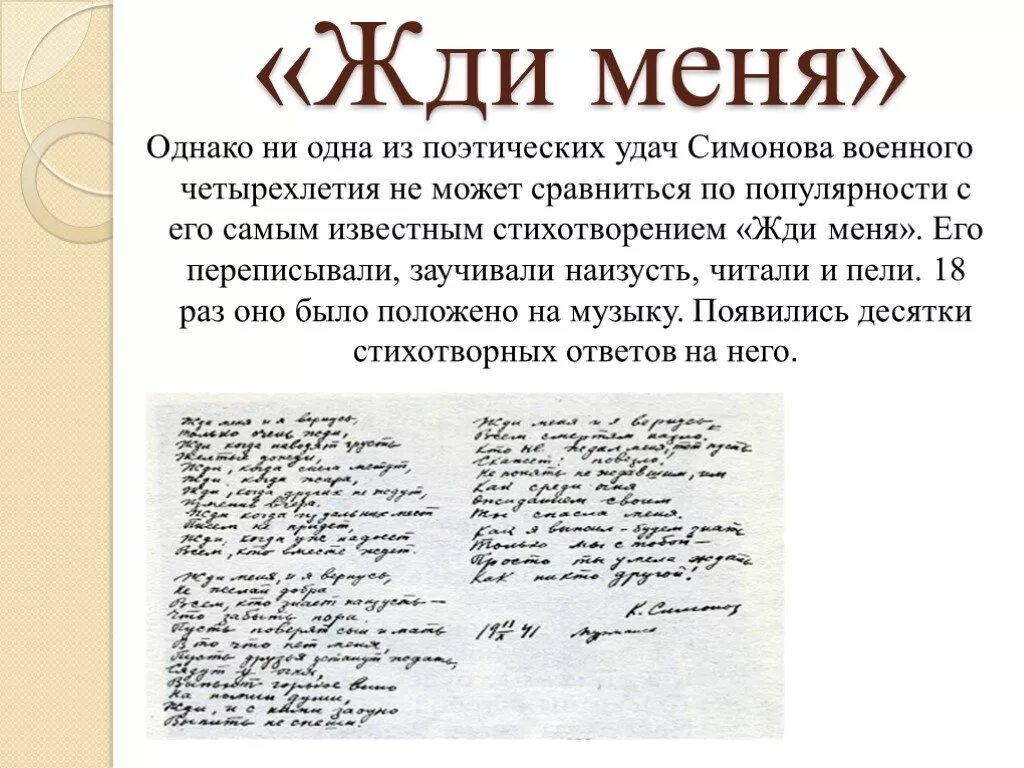 «Жди меня»
Однако ни одна из поэтических удач Симонова военного
четырехлетия не может сравниться по популярности с
его самым известным стихотворением «Жди меня». Его
переписывали, заучивали наизусть, читали и пели. 18
раз оно было положено на музыку. Появились десятки
стихотворных ответов на него.
Жди меня и я вернусь,
только очень жди,
Жди когда наводят грусть
Желтые дожди,
Жди, когда снега метут,
Жди когда жара,
Жди, когда других не ждут,
Изменив вчера.
Жди когда из дальних мест
Писем не придет,
Жди, когда уже надоест
Всем, кто вместе ждет.
Жди меня, и я вернусь,
Не желай добра
Всем, кто знает наизусть —
Что забыть пора.
Пусть поверят сын и мать
В то что нет меня,
Пусть друзья устанут ждать,
Сядут у огня,
Выпьют горькое вино
На помин души,
Жди, и с ними заодно
Выпить не спеши.
Жди меня и я вернусь,
Всем смертям назло.
Кто не ждал меня, тот пусть
Скажет: повезло!
Не понять не ждавшим, им
Как среди огня
Ожиданием своим
Ты спасла меня.
Как я выжил – будем знать
Только мы с тобой —
Просто ты умела ждать
Как никто другой!
К. Симонов
41